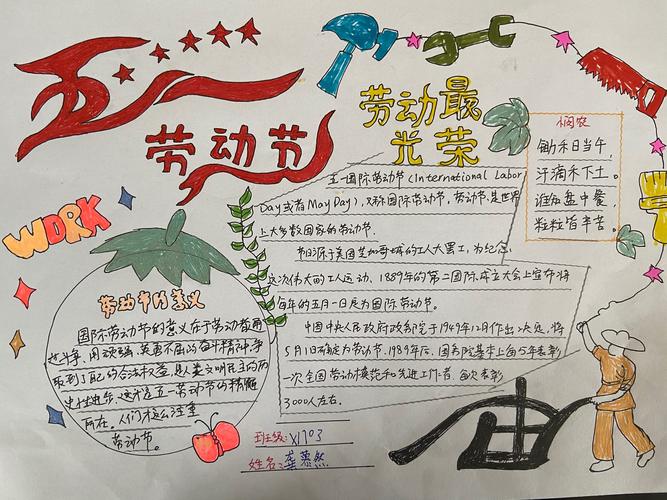 五一
劳动节
劳动最
光荣
WORK
悯农
锄禾日当午,
汗滴禾下土。
谁知盘中餐,
粒粒皆辛苦。
五一国际劳动节(International Labor
Day或者May Day),又称国际劳动节,劳动节,是世界
上大多数国家的劳动节.
节日源于美国芝加哥城的工人大罢工,为纪念
这次伟大的工人运动、1889年的第二国际成立大会上宣布将
每年的五月一日定为国际劳动节。
中国中央人民政府政务院于1949年12月作出决定,将
5月1日确定为劳动节.1989年后,国务院基本上每5年表彰
一次全国劳动模范和先进工作者 每次表彰
3000人左右.
劳动节的意义
国际劳动节的意义在于劳动者通
过斗争,用顽强、英勇不屈的奋斗精神,争
取到了自己的合法权益,是人类文明民主的历
史性进步,这才是五一劳动节的精髓
所在。人们才这么注重
劳动节。
班级:X1703
姓名:龚慕然